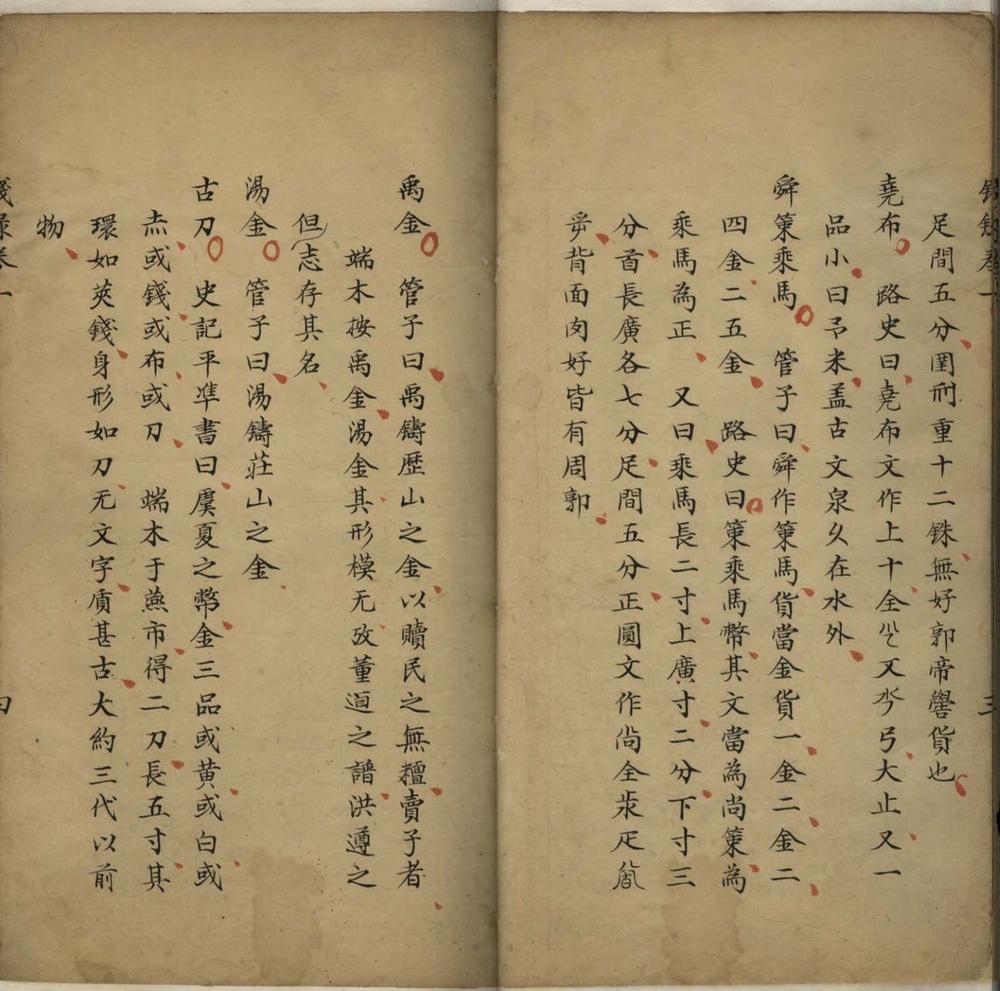 錢錄卷一 三
足間五分圍刑重十二銖無好郭帝嚳貨也
堯布 路史曰堯布文作上十全 又 弓大止又一
品小曰 米盖古文泉久在水外
舜策乘馬 管子曰舜作策馬貨當金貨一金二金二
四金二五金 路史曰策乘馬幣其文當為尚策為
乘馬為正 又曰乘馬長二寸上廣寸二分下寸三
分首長廣各七分足間五分正圓文作尙全 疋
背面肉好皆有周郭
禹金 管子曰禹鑄歷山之金以贖民之無䊤賣子者
端木按禹金湯金其形模无攷董逌之譜洪遵之
但志存其名
湯金 管子曰湯鑄莊山之金
古刀 史記平凖書曰虞夏之幣金三品或黄或白或
赤或錢或布或刀 端木于燕市得二刀長五寸其
環如莢錢身形如刀无文字質甚古大約三代以前
物
錢錄卷一 四